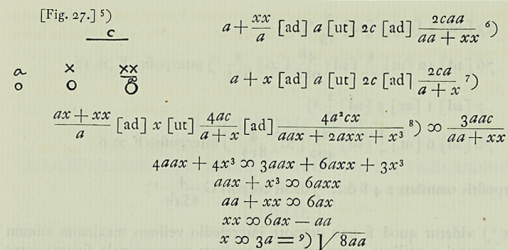 [Fig. 27.] ⁵)
c
a x xx/a
o o 8
a + xx/a [ad] a [ut] 2c [ad] 2caa/aa + xx ⁶)
a + x [ad] a [ut] 2c [ad] 2ca/a + x ⁷)
ax + xx/a [ad] x [ut] 4ac/a + x [ad] 4a³cx/aax + 2axx + x³ ⁸) ∞ 3aac/aa + xx
4aax + 4x³ ∞ 3aax + 6axx + 3x³
aax + x³ ∞ 6axx
aa + xx ∞ 6ax
xx ∞ 6ax — aa
x ∞ 3a = ⁹) √8aa